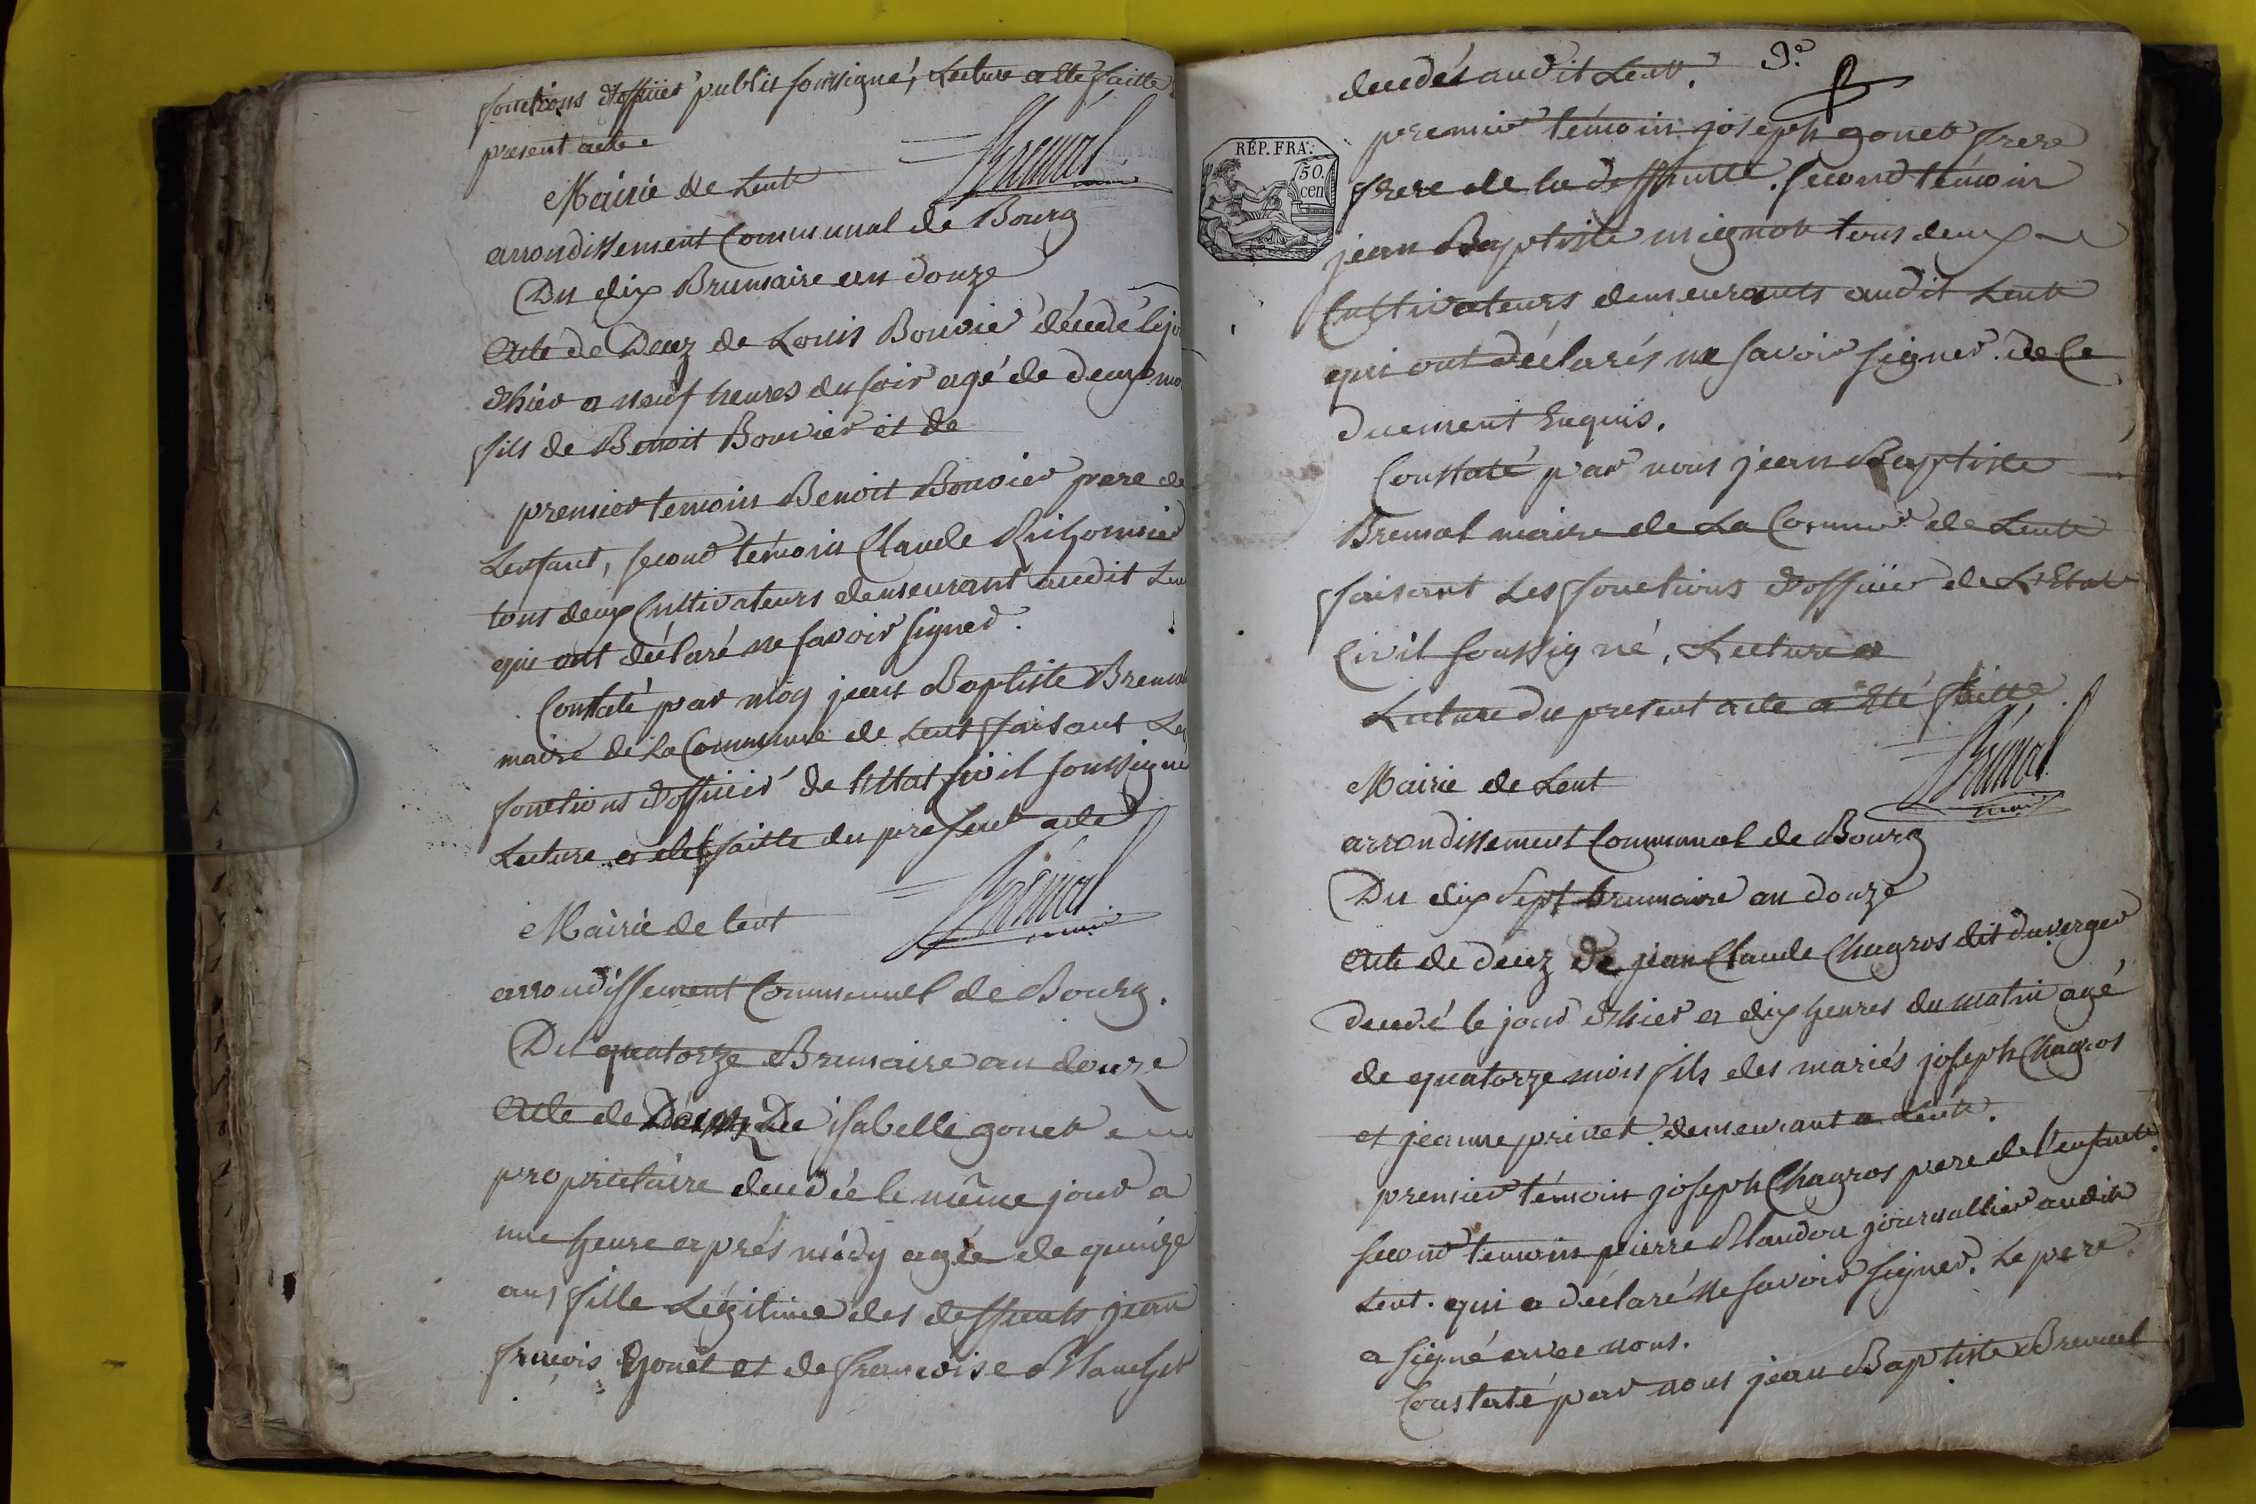 fonctions d'officier public soussigné, Lecture a été faitte
present acte.
Bremal
maire
Mairie de Lent
arrondissement Communal de Bourg
Du dix Brumaire an douze
Acte de Decez de Louis Bouvie décédé le jo
d'hier a neuf heures du soir agé de deux mo
fils de Benoit Bouvier et de
premier temoin Benoit Bouvier pere de
Lenfant, second témoin Claude
tous deux Cultivateurs demeurant audit Len
qui ont déclaré ne savoir signer.
Constaté par moy jean Baptiste Bremal
maire de la Commune de Lent faisant Les
fonctions d'officier de l'Etat Civil soussigné
Lecture a été faitte du present acte
Bremal
maire
Mairie de lent
arrondissement Communel de Bourg.
Du quatorze Brumaire an douze
Acte de Decez De isabelle gonet
propriétaire decedée le même jour a
une heure après midy agée de quinze
ans fille Légitime des deffunts jean
françois gonet et de françoise Blanchet
decedés audit Lent. 9.e
RÉP. FRA.
50.
cen
premier témoin joseph gonet frere
frere de la deffunte. second témoin
jean Baptiste mignot tous deux
Cultivateurs demeurants audit Lent
qui ont déclarés ne savoir signer. de Ce
duement Enquis.
Constaté par nous jean Baptiste
Bremal maire de La Commune de Lent
faisant Les fonctions d'officier de L'Etat
Civil soussigné, Lecture a
Lecture du present acte a été faitte.
Bremal
maire
Mairie de Lent
arrondissement Communal de Bourg
Du dix Sept brumaire an douze
Acte de decez De jean Claude Chagros dit duverger
decedé le jour d'hier a dix heures du matin agé
de quatorze mois fils des mariés joseph Chagros
et jeanne privet demeurant a Lent.
premier témoin joseph Chagros pere de l'enfant
second temoin pierre Blandon journallier audit
Lent. qui a déclaré ne savoir signer. Le pere
a signé avec nous.
Constaté par nous jean Baptiste Bremal